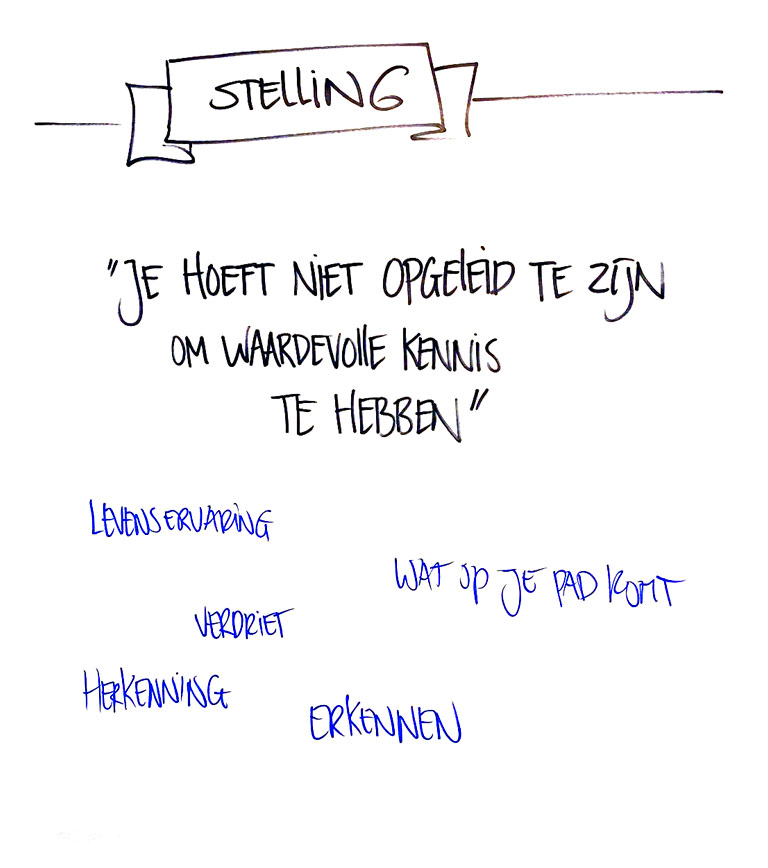 STELLING
"JE HOEFT NIET OPGELEID TE ZIJN
OM WAARDEVOLLE KENNIS
TE HEBBEN"
LEVENSERVARING
WAT OP JE PAD KOMT
VERDRIET
HERKENNING
ERKENNEN